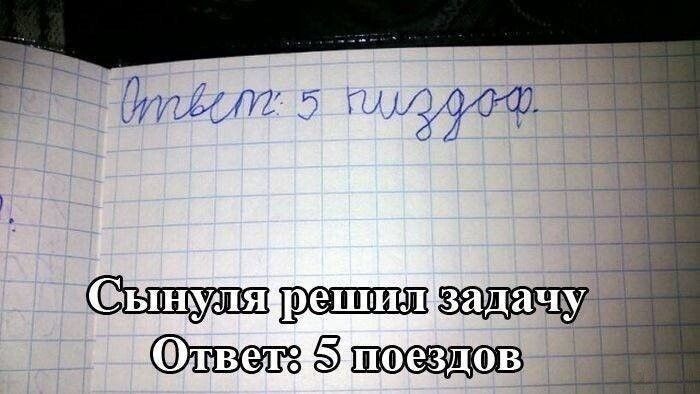 Ответ: 5 пиздоф.
Сынуля решил задачу
Ответ: 5 поездов